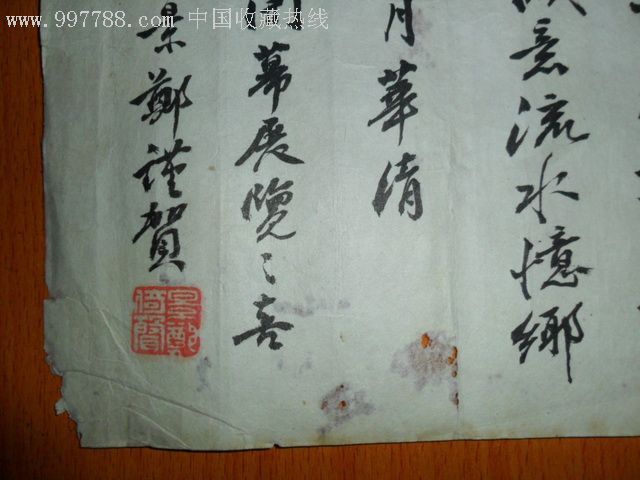 www.997788.com 中国收藏热线
意流水憶鄉
月華清
幕展覽之喜
景鄭謹賀
景鄭